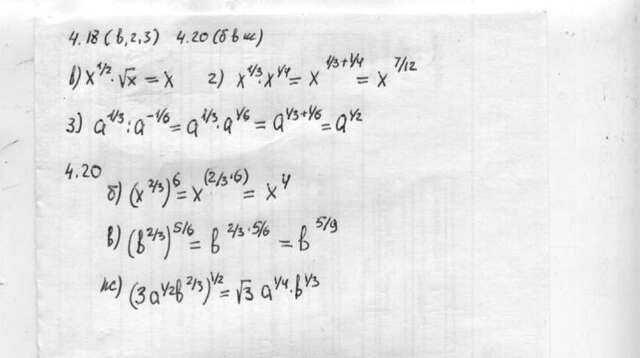 4.18 (в,г,з) 4.20 (б в ж)
в) x^1/2 · √x = x г) x^1/3 · x^1/4 = x^1/3+1/4 = x^7/12
з) a^1/3 : a^-1/6 = a^1/3 · a^1/6 = a^1/3+1/6 = a^1/2
4.20
б) (x^2/3)^6 = x^(2/3·6) = x^4
в) (b^2/3)^5/6 = b^2/3·5/6 = b^5/9
ж) (3a^1/2 b^2/3)^1/2 = √3 a^1/4 · b^1/3